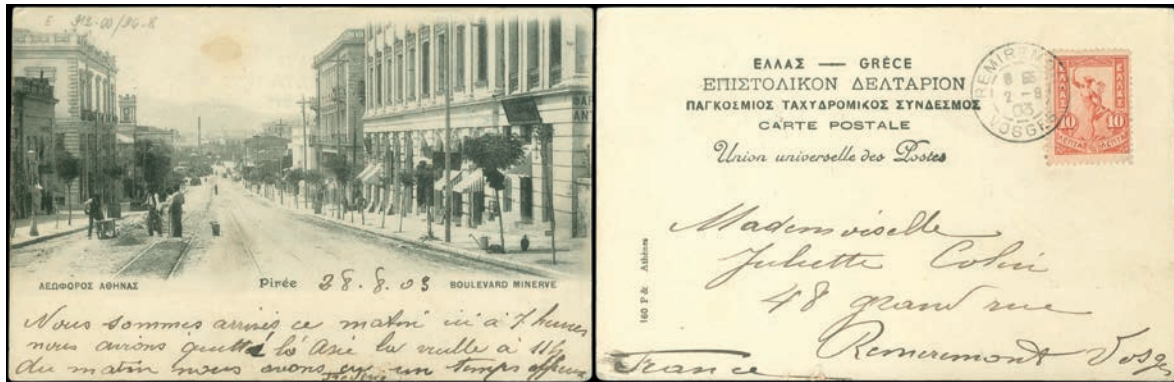 E 912-00/90-8
ΛΕΩΦΟΡΟΣ ΑΘΗΝΑΣ Pirée 28.8.03 BOULEVARD MINERVE
Nous sommes arrivés ce matin ici à 7 heures
nous avons quitté la Asie la veille à 11h
du matin nous avons eu un temps affreux
ΕΛΛΑΣ — GRÈCE
ΕΠΙΣΤΟΛΙΚΟΝ ΔΕΛΤΑΡΙΟΝ
ΠΑΓΚΟΣΜΙΟΣ ΤΑΧΥΔΡΟΜΙΚΟΣ ΣΥΝΔΕΣΜΟΣ
CARTE POSTALE
Union universelle des Postes
REMIREM
2-9
03
VOSGES
ΕΛΛΑΣ ΕΛΛΑΣ
10 10
ΛΕΠΤΑ ΛΕΠΤΑ
160 P & Athènes
Mademoiselle
Juliette Colin
48 grand rue
Remiremont Vosges
France